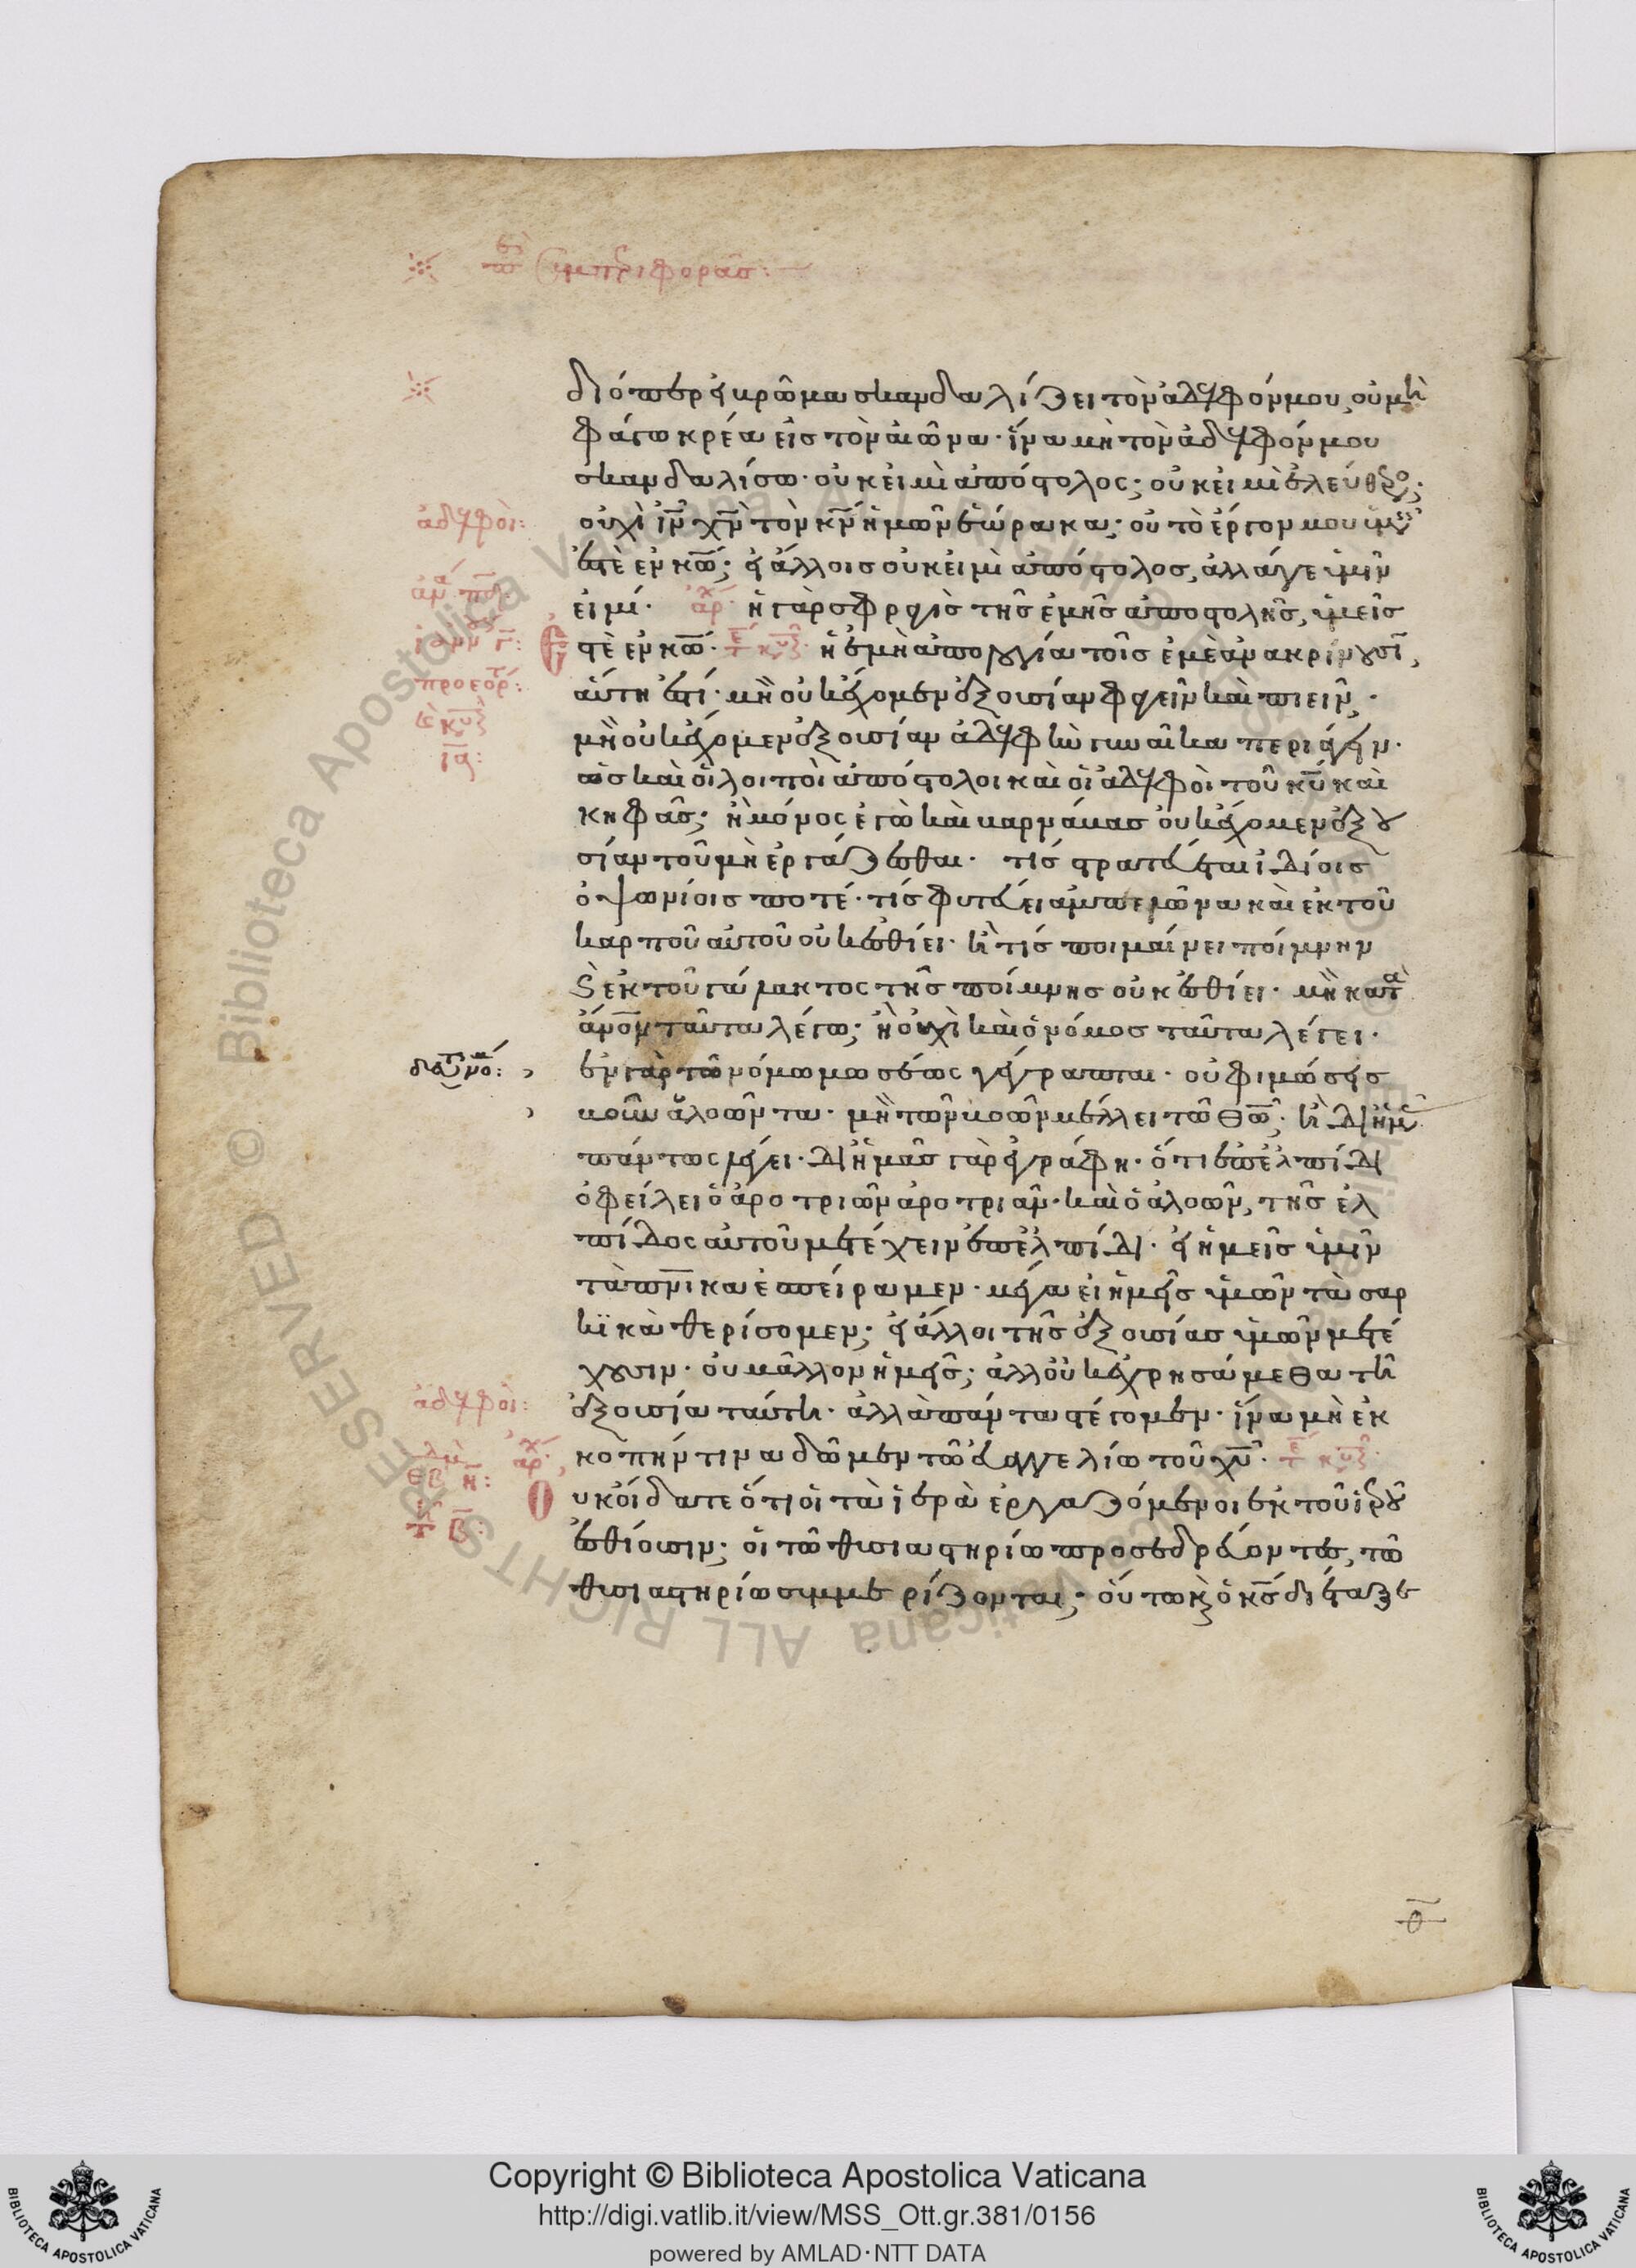 διόπερ εἰ βρῶμα σκανδαλίζει τὸν ἀδελφόν μου, οὐ μὴ
φάγω κρέα εἰς τὸν αἰῶνα· ἵνα μὴ τὸν ἀδελφόν μου
σκανδαλίσω· οὐκ εἰμὶ ἀπόστολος; οὐκ εἰμὶ ἐλεύθερος;
ἀδελφοί:
οὐχὶ ἰν̅ χν̅ τὸν κν̅ ἡμῶν ἑώρακα; οὐ τὸ ἔργον μου ὑμεῖς
ἐστὲ ἐν κω̅; εἰ ἄλλοις οὐκ εἰμὶ ἀπόστολος, ἀλλάγε ὑμῖν
εἰμί· ἀρχ ἡ γὰρ σφραγὶς τῆς ἐμῆς ἀποστολῆς, ὑμεῖς
ἐστὲ ἐν κω̅· ἡ ἐμὴ ἀπολογία τοῖς ἐμὲ ἀνακρίνουσι,
προεορτ:
αὕτη ἐστί· μὴ οὐκ ἔχομεν ἐξουσίαν φαγεῖν καὶ πιεῖν,
μὴ οὐκ ἔχομεν ἐξουσίαν ἀδελφὴν γυναῖκα περιάγειν·
ὡς καὶ οἱ λοιποὶ ἀπόστολοι καὶ οἱ ἀδελφοὶ τοῦ κυ̅ καὶ
κηφᾶς; ἢ μόνος ἐγὼ καὶ βαρνάβας οὐκ ἔχομεν ἐξου
σίαν τοῦ μὴ ἐργάζεσθαι· τίς στρατεύεται ἰδίοις
ὀψωνίοις ποτέ· τίς φυτεύει ἀμπελῶνα καὶ ἐκ τοῦ
καρποῦ αὐτοῦ οὐκ ἐσθίει· ἢ τίς ποιμαίνει ποίμνην
καὶ ἐκ τοῦ γάλακτος τῆς ποίμνης οὐκ ἐσθίει· μὴ κατὰ
ἄνον̅ ταῦτα λέγω; ἢ οὐχὶ καὶ ὁ νόμος ταῦτα λέγει·
ἐν γὰρ τῶ νόμω μωσέως γέγραπται· οὐ φιμώσεις
βοῦν ἀλοῶντα· μὴ τῶν βοῶν μέλλει τῶ θω̅; ἢ δι ἡμᾶς
πάντως λέγει· δι ἡμᾶς γὰρ ἐγράφη· ὅτι ἐπ ἐλπίδι
ὀφείλει ὁ ἀροτριῶν ἀροτριᾶν· καὶ ὁ ἀλοῶν, τῆς ἐλ
πίδος αὐτοῦ μετέχειν ἐπ ἐλπίδι· εἰ ἡμεῖς ὑμῖν
τὰ πνι̅κα ἐσπείραμεν· μέγα εἰ ἡμεῖς ὑμῶν τὰ σαρ
κικὰ θερίσομεν; εἰ ἄλλοι τῆς ἐξουσίας ὑμῶν μετέ
χουσιν· οὐ μᾶλλον ἡμεῖς; ἀλλ οὐκ ἐχρησάμεθα τῆ
ἀδελφοί:
ἐξουσία ταύτη· ἀλλὰ πάντα στέγομεν· ἵνα μὴ ἐκ
κοπήν τινα δῶμεν τῶ εὐαγγελίω τοῦ χυ̅·
Ουκ οἴδατε ὅτι οἱ τὰ ἱερὰ ἐργαζόμενοι ἐκ τοῦ ἱεροῦ
ἐσθίουσιν; οἱ τῶ θυσιαστηρίω προσεδρεύοντες, τῶ
θυσιαστηρίω συμμερίζονται; οὕτω καὶ ὁ κς̅ διέταξε
Copyright © Biblioteca Apostolica Vaticana
http://digi.vatlib.it/view/MSS_Ott.gr.381/0156
powered by AMLAD·NTT DATA